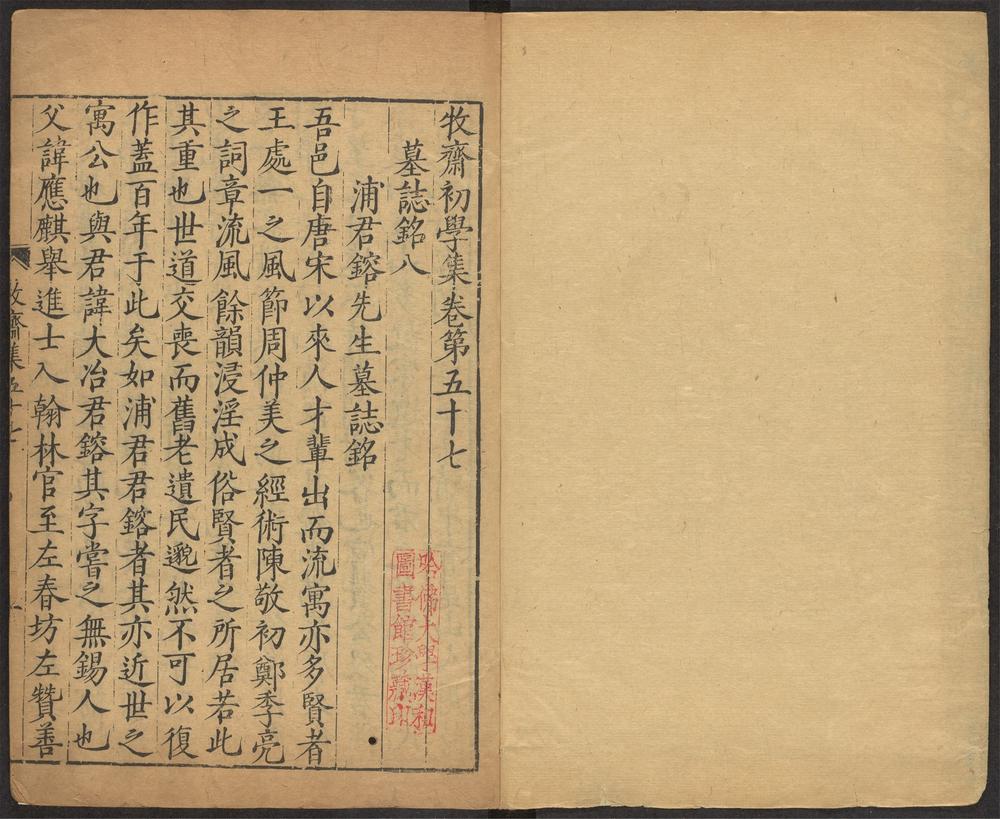 牧齋初學集卷第五十七
墓誌銘八
浦君鎔先生墓誌銘
吾邑自唐宋以來人才輩出而流寓亦多賢者
王處一之風節周仲美之經術陳敬初鄭季亮
之詞章流風餘韻浸淫成俗賢者之所居若此
其重也世道交喪而舊老遺民邈然不可以復
作蓋百年于此矣如浦君君鎔者其亦近世之
寓公也與君諱大冶君鎔其字嘗之無錫人也
父諱應麒舉進士入翰林官至左春坊左贊善
牧齋集五十七
一
哈佛大學漢和
圖書館珍藏印